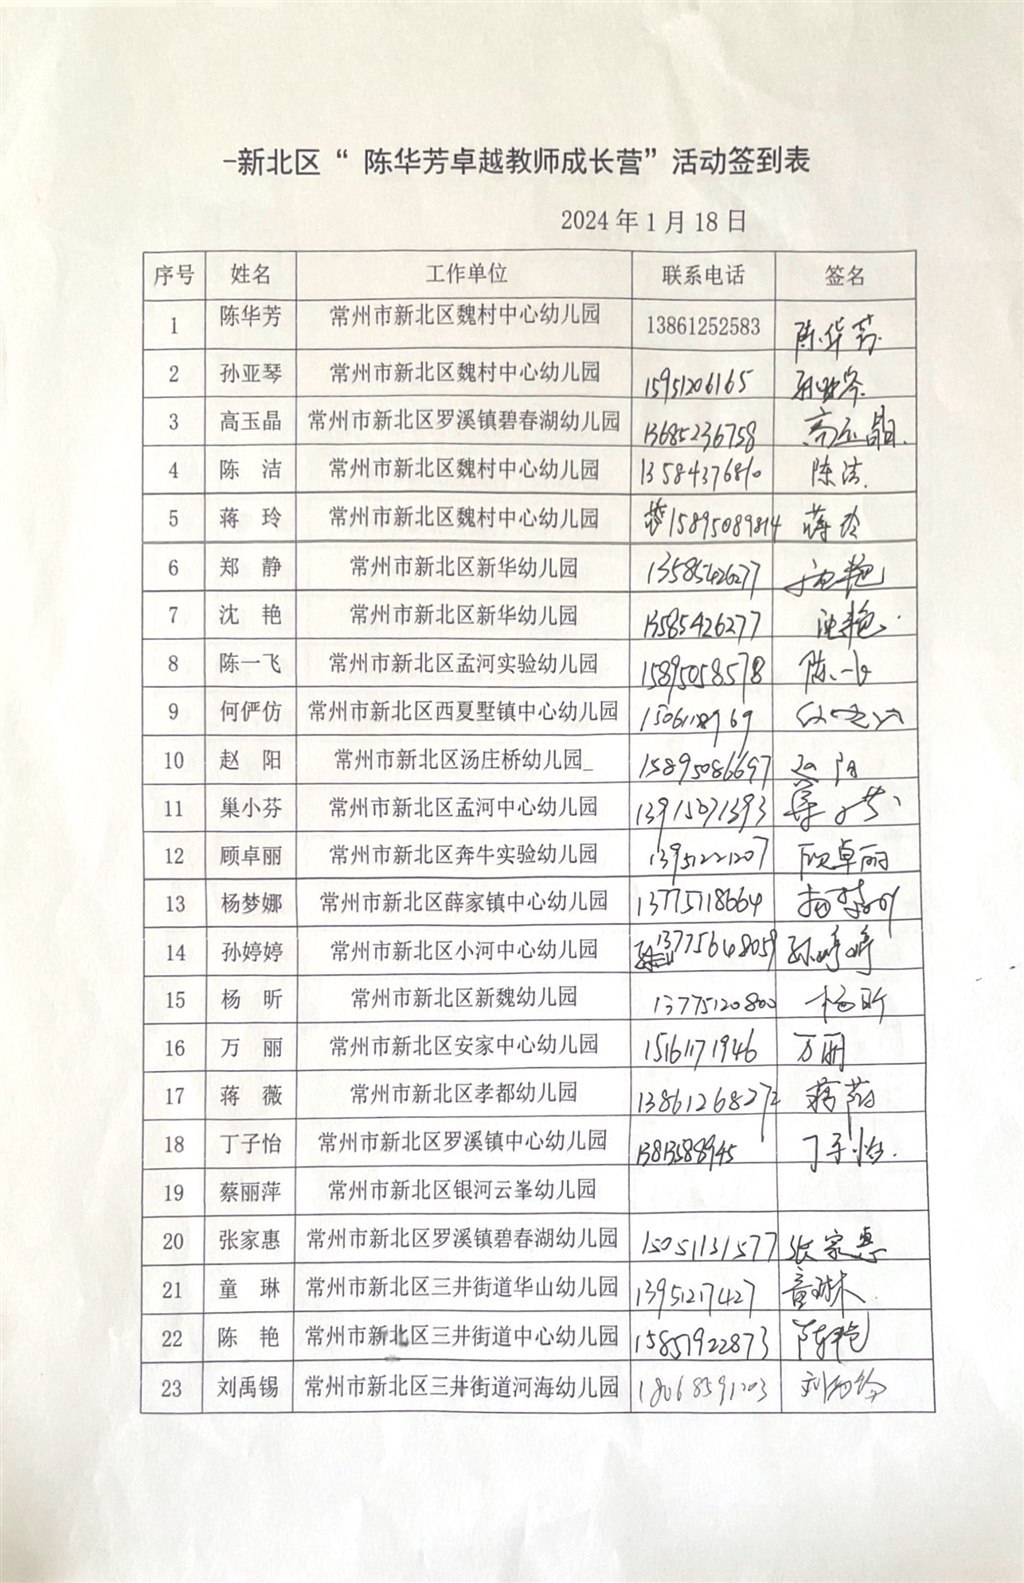 -新北区“ 陈华芳卓越教师成长营”活动签到表
2024 年 1 月 18 日
序号 姓名 工作单位 联系电话 签名
1 陈华芳 常州市新北区魏村中心幼儿园 13861252583 陈华芳
2 孙亚琴 常州市新北区魏村中心幼儿园 15951206165 孙亚琴
3 高玉晶 常州市新北区罗溪镇碧春湖幼儿园 13685236758 高玉晶
4 陈 洁 常州市新北区魏村中心幼儿园 13584376810 陈洁
5 蒋 玲 常州市新北区魏村中心幼儿园 15895089814 蒋玲
6 郑 静 常州市新北区新华幼儿园 13585426277
7 沈 艳 常州市新北区新华幼儿园 13585426277 沈艳
8 陈一飞 常州市新北区孟河实验幼儿园 15895058578 陈一飞
9 何俨仿 常州市新北区西夏墅镇中心幼儿园
10 赵 阳 常州市新北区汤庄桥幼儿园_ 15895086697 赵阳
11 巢小芬 常州市新北区孟河中心幼儿园 13915071393 巢小芬
12 顾卓丽 常州市新北区奔牛实验幼儿园 13951221207 顾卓丽
13 杨梦娜 常州市新北区薛家镇中心幼儿园 13775118664 杨梦娜
14 孙婷婷 常州市新北区小河中心幼儿园 13775648059 孙婷婷
15 杨 昕 常州市新北区新魏幼儿园 13775120800 杨昕
16 万 丽 常州市新北区安家中心幼儿园 15161171946 万丽
17 蒋 薇 常州市新北区孝都幼儿园 13861268272 蒋薇
18 丁子怡 常州市新北区罗溪镇中心幼儿园 13813588945 丁子怡
19 蔡丽萍 常州市新北区银河云峯幼儿园
20 张家惠 常州市新北区罗溪镇碧春湖幼儿园 15051131577 张家惠
21 童 琳 常州市新北区三井街道华山幼儿园 13951217427 童琳
22 陈 艳 常州市新北区三井街道中心幼儿园 15851922873 陈艳
23 刘禹锡 常州市新北区三井街道河海幼儿园 18068591203